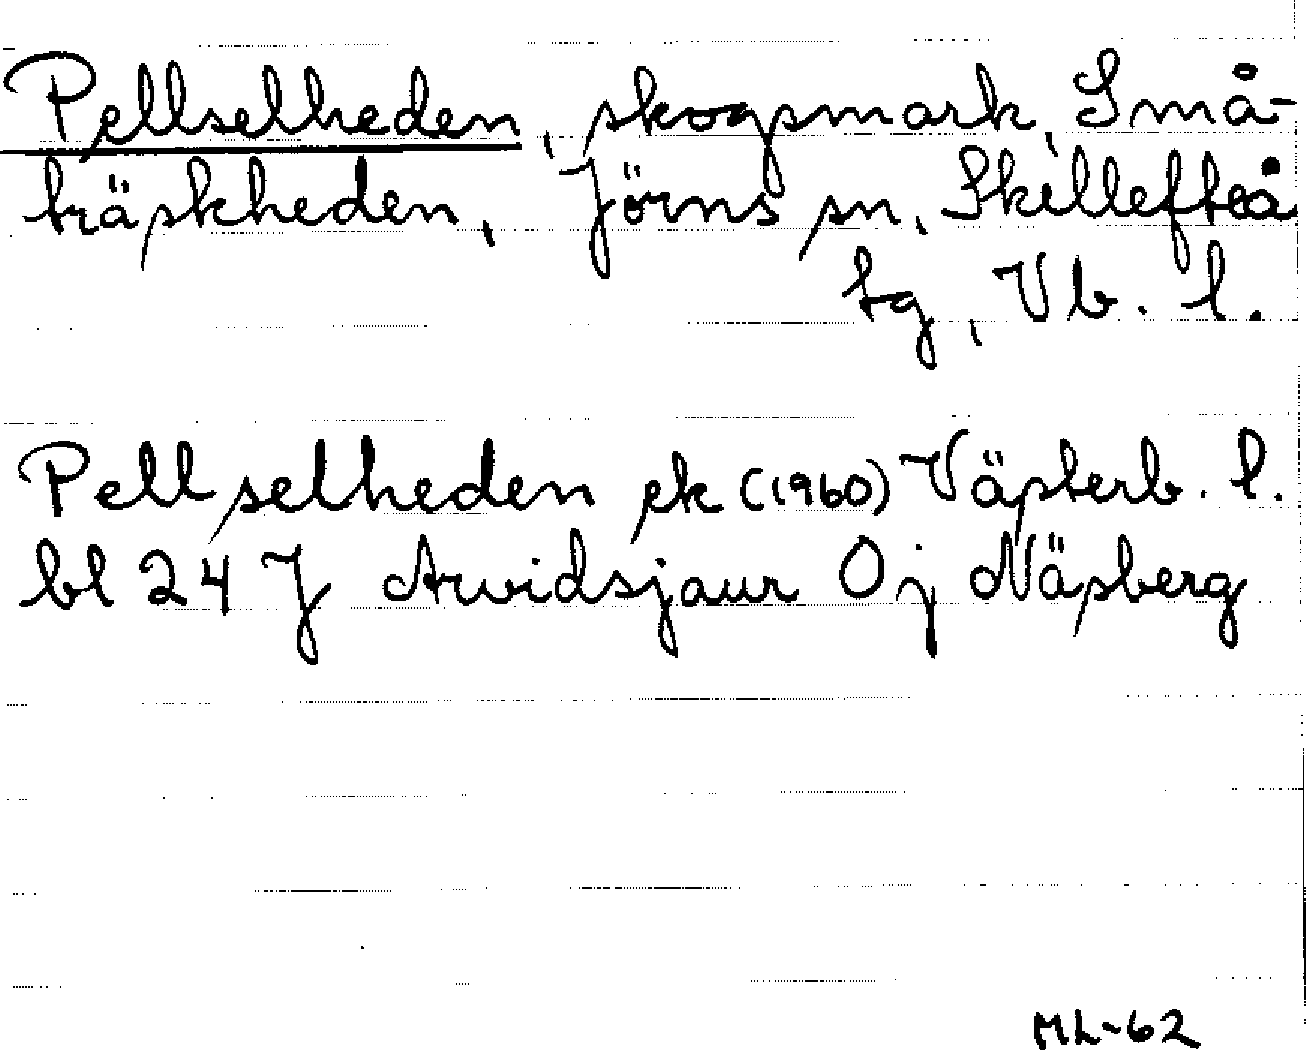 Pellselheden, skogsmark, Små-
träskheden, Jörns sn, Skellefteå
tg, Vb. l.
Pellselheden ek (1960) Västerb. l.
bl 24 J Arvidsjaur O j Näsberg
ML-62